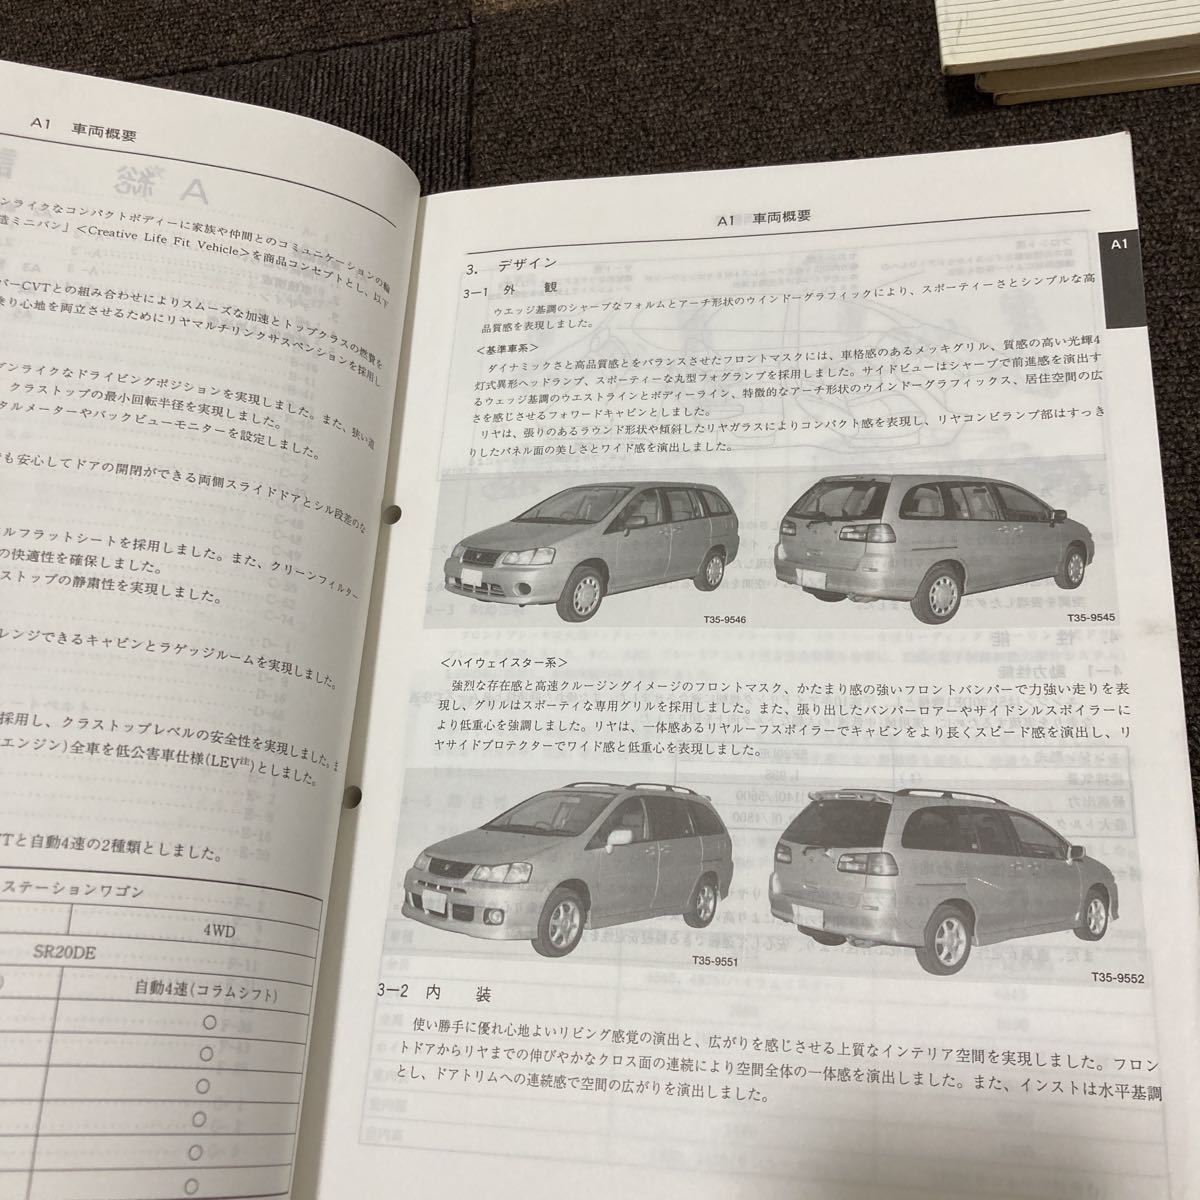 A1 車両概要
ンライクなコンパクトボディーに家族や仲間とのコミュニケーションの輪
造ミニバン」<Creative Life Fit Vehicle>を商品コンセプトとし、以下
パーCVTとの組み合わせによりスムーズな加速とトップクラスの燃費を
乗り心地を両立させるためにリヤマルチリンクサスペンションを採用し
ンライクなドライビングポジションを実現しました。また、狭い道
クラストップの最小回転半径を実現しました。
タルメーターやバックビューモニターを設定しました。
でも安心してドアの開閉ができる両側スライドドアとシル段差のな
ルフラットシートを採用しました。また、クリーンフィルター
の快適性を確保しました。
ストップの静粛性を実現しました。
レンジできるキャビンとラゲッジルームを実現しました。
採用し、クラストップレベルの安全性を実現しました。ま
エンジン)全車を低公害車仕様(LEV注)としました。
VTと自動4速の2種類としました。
ステーションワゴン
4WD
SR20DE
自動4速(コラムシフト)
○
○
○
○
○
○
A1 車両概要
A1
3. デザイン
3-1 外 観
ウエッジ基調のシャープなフォルムとアーチ形状のウインドーグラフィックにより、スポーティーさとシンプルな高
品質感を表現しました。
<基準車系>
ダイナミックさと高品質感とをバランスさせたフロントマスクには、車格感のあるメッキグリル、質感の高い光輝4
灯式異形ヘッドランプ、スポーティーな丸型フォグランプを採用しました。サイドビューはシャープで前進感を演出す
るウェッジ基調のウエストラインとボディーライン、特徴的なアーチ形状のウインドーグラフィックス、居住空間の広
さを感じさせるフォワードキャビンとしました。
リヤは、張りのあるラウンド形状や傾斜したリヤガラスによりコンパクト感を表現し、リヤコンビランプ部はすっき
りしたパネル面の美しさとワイド感を演出しました。
T35-9546
T35-9545
<ハイウェイスター系>
強烈な存在感と高速クルージングイメージのフロントマスク、かたまり感の強いフロントバンパーで力強い走りを表
現し、グリルはスポーティな専用グリルを採用しました。また、張り出したバンパーロアーやサイドシルスポイラーに
より低重心を強調しました。リヤは、一体感あるリヤルーフスポイラーでキャビンをより長くスピード感を演出し、リ
ヤサイドプロテクターでワイド感と低重心を表現しました。
T35-9551
T35-9552
3-2 内 装
使い勝手に優れ心地よいリビング感覚の演出と、広がりを感じさせる上質なインテリア空間を実現しました。フロン
トドアからリヤまでの伸びやかなクロス面の連続により空間全体の一体感を演出しました。また、インストは水平基調
とし、ドアトリムへの連続感で空間の広がりを演出しました。